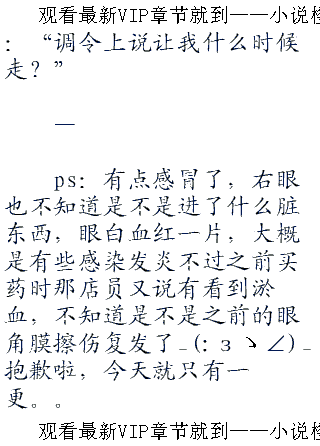 观看最新VIP章节就到——小说楼
：“调令上说让我什么时候
走？”
—
ps：有点感冒了，右眼
也不知道是不是进了什么脏
东西，眼白血红一片，大概
是有些感染发炎不过之前买
药时那店员又说有看到淤
血，不知道是不是之前的眼
角膜擦伤复发了_(:зヽ∠)_
抱歉啦，今天就只有一
更。。
观看最新VIP章节就到——小说楼